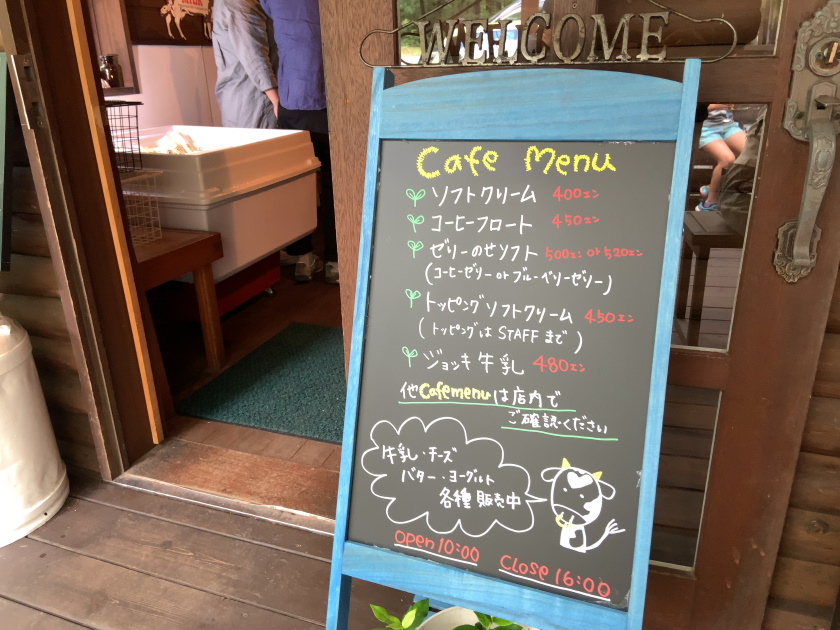 MILK
WELCOME
Cafe Menu
ソフトクリーム 400エン
コーヒーフロート 450エン
ゼリーのせソフト 500エン or 520エン
(コーヒーゼリー or ブルーベリーゼリー)
トッピングソフトクリーム 450エン
(トッピングは STAFF まで)
ジョッキ牛乳 480エン
他Cafemenuは店内で
ご確認ください
牛乳・チーズ
バター・ヨーグルト
各種販売中
Open 10:00 Close 16:00